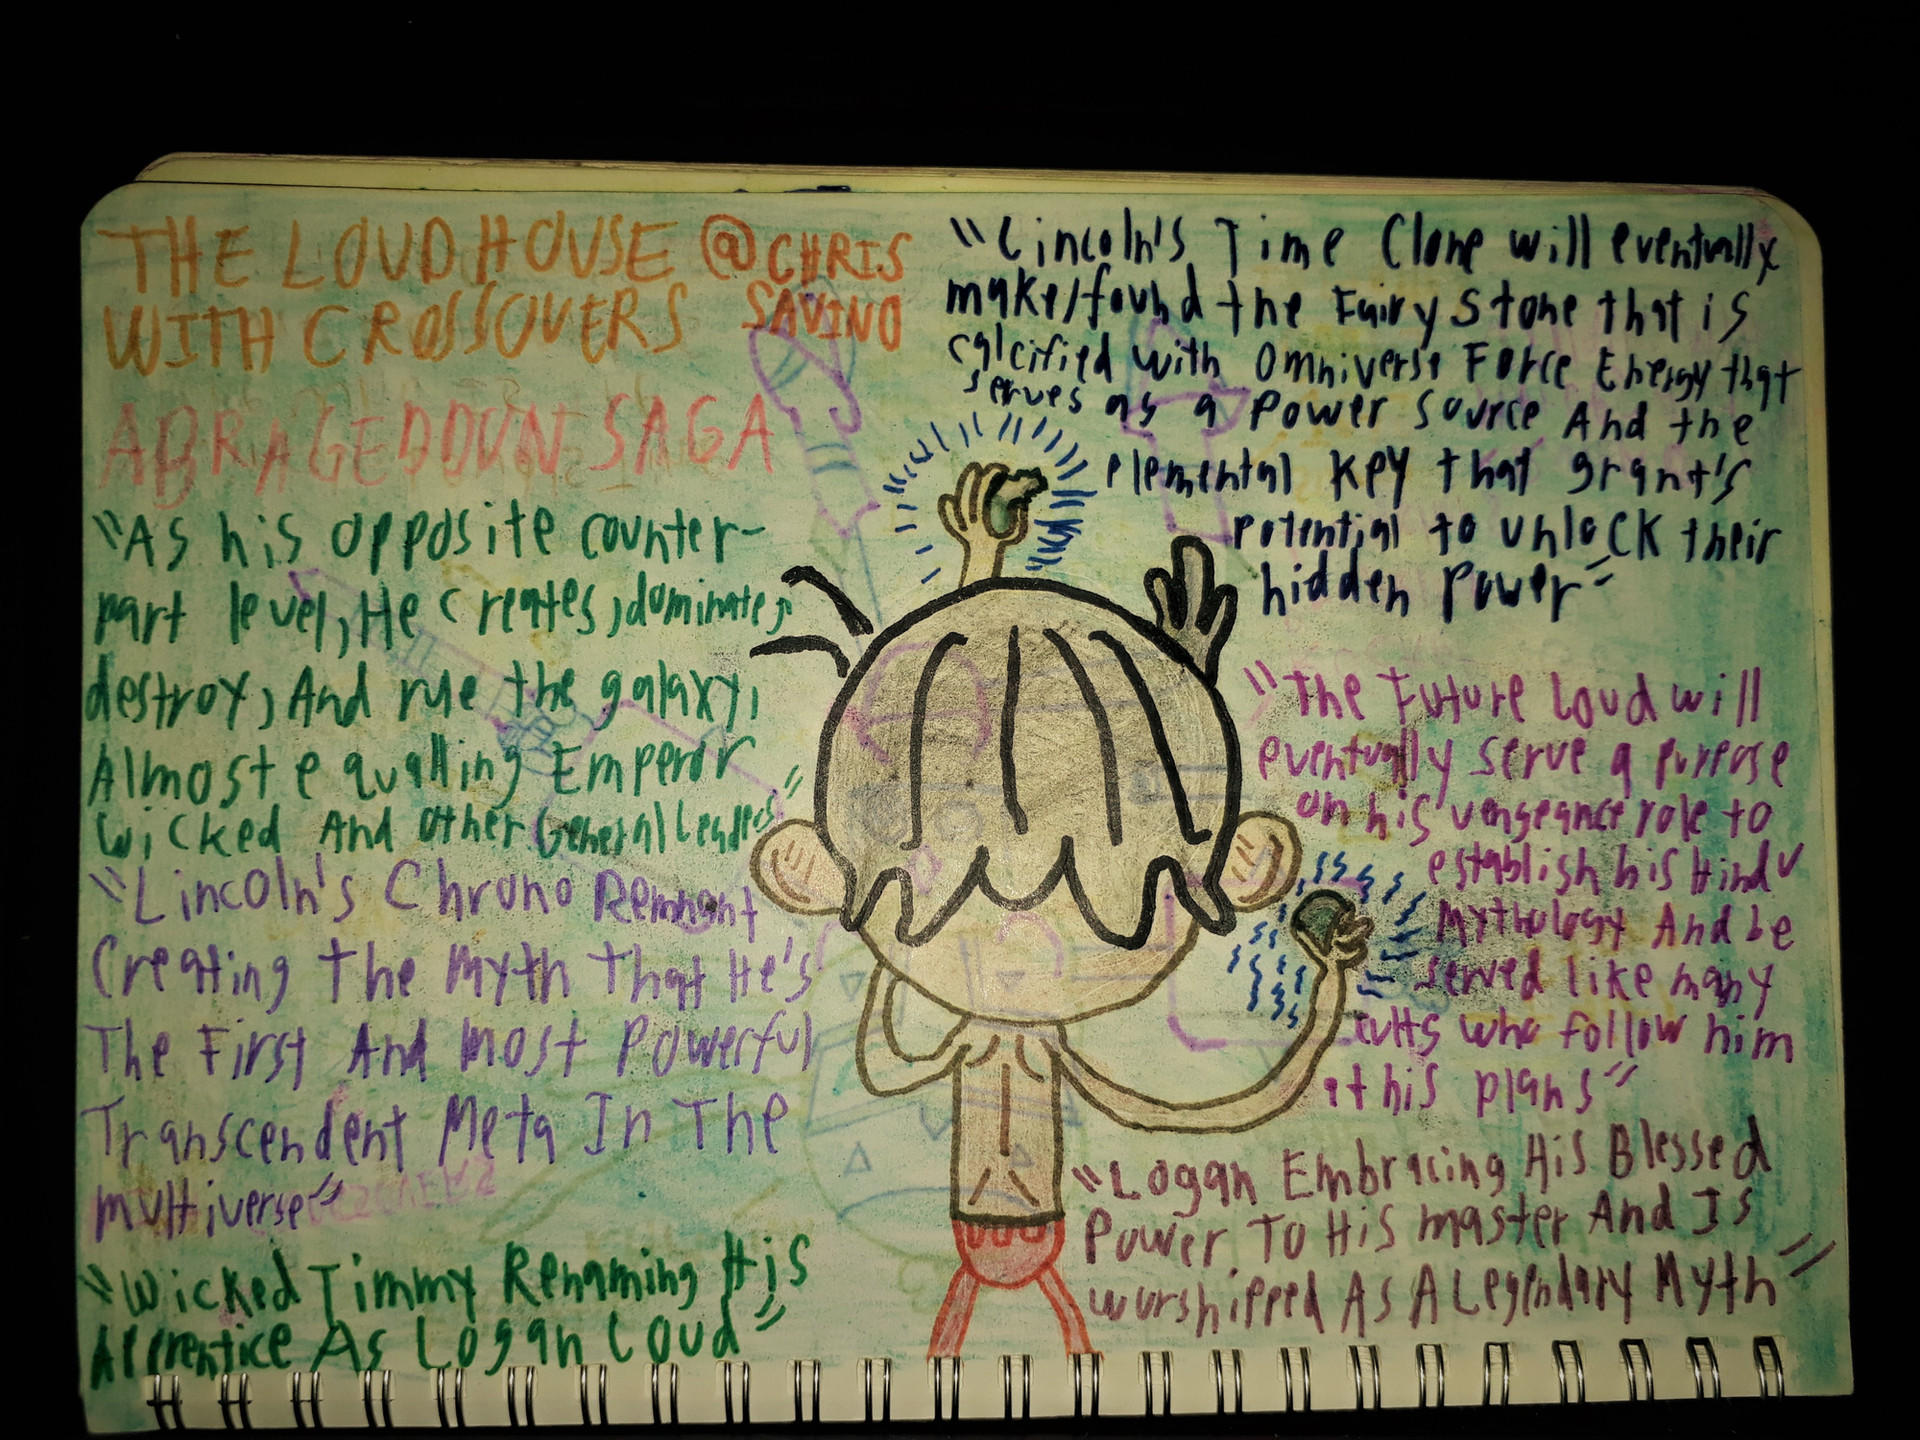 THE LOUD HOUSE @CHRIS
WITH CROSSOVERS SAVINO
ABRAGEDDUN SAGA
"As his opposite counter-
part level, He creates, dominates,
destroy, And rule the galaxy,
Almost equalling Emperor
Wicked And Other General Leaders"
"Lincoln's Chrono Remnant
Creating The Myth That He's
The First And Most Powerful
Transcendent Meta In The
Multiverse"
"Wicked Timmy Renaming His
Apprentice As Logan Loud"
"Lincoln's Time Clone will eventually
make/found the Fairy Stone that is
calcified with Omniverse Force Energy that
serves as a Power Source And the
elemental Key that grant's
potential to unlock their
hidden power"
"The Future Loud will
eventually serve a purpose
on his vengeance role to
establish his Hindu
Mythology And be
served like many
cults who follow him
at his plans"
"Logan Embracing His Blessed
Power To His Master And Is
Worshipped As A Legendary Myth"